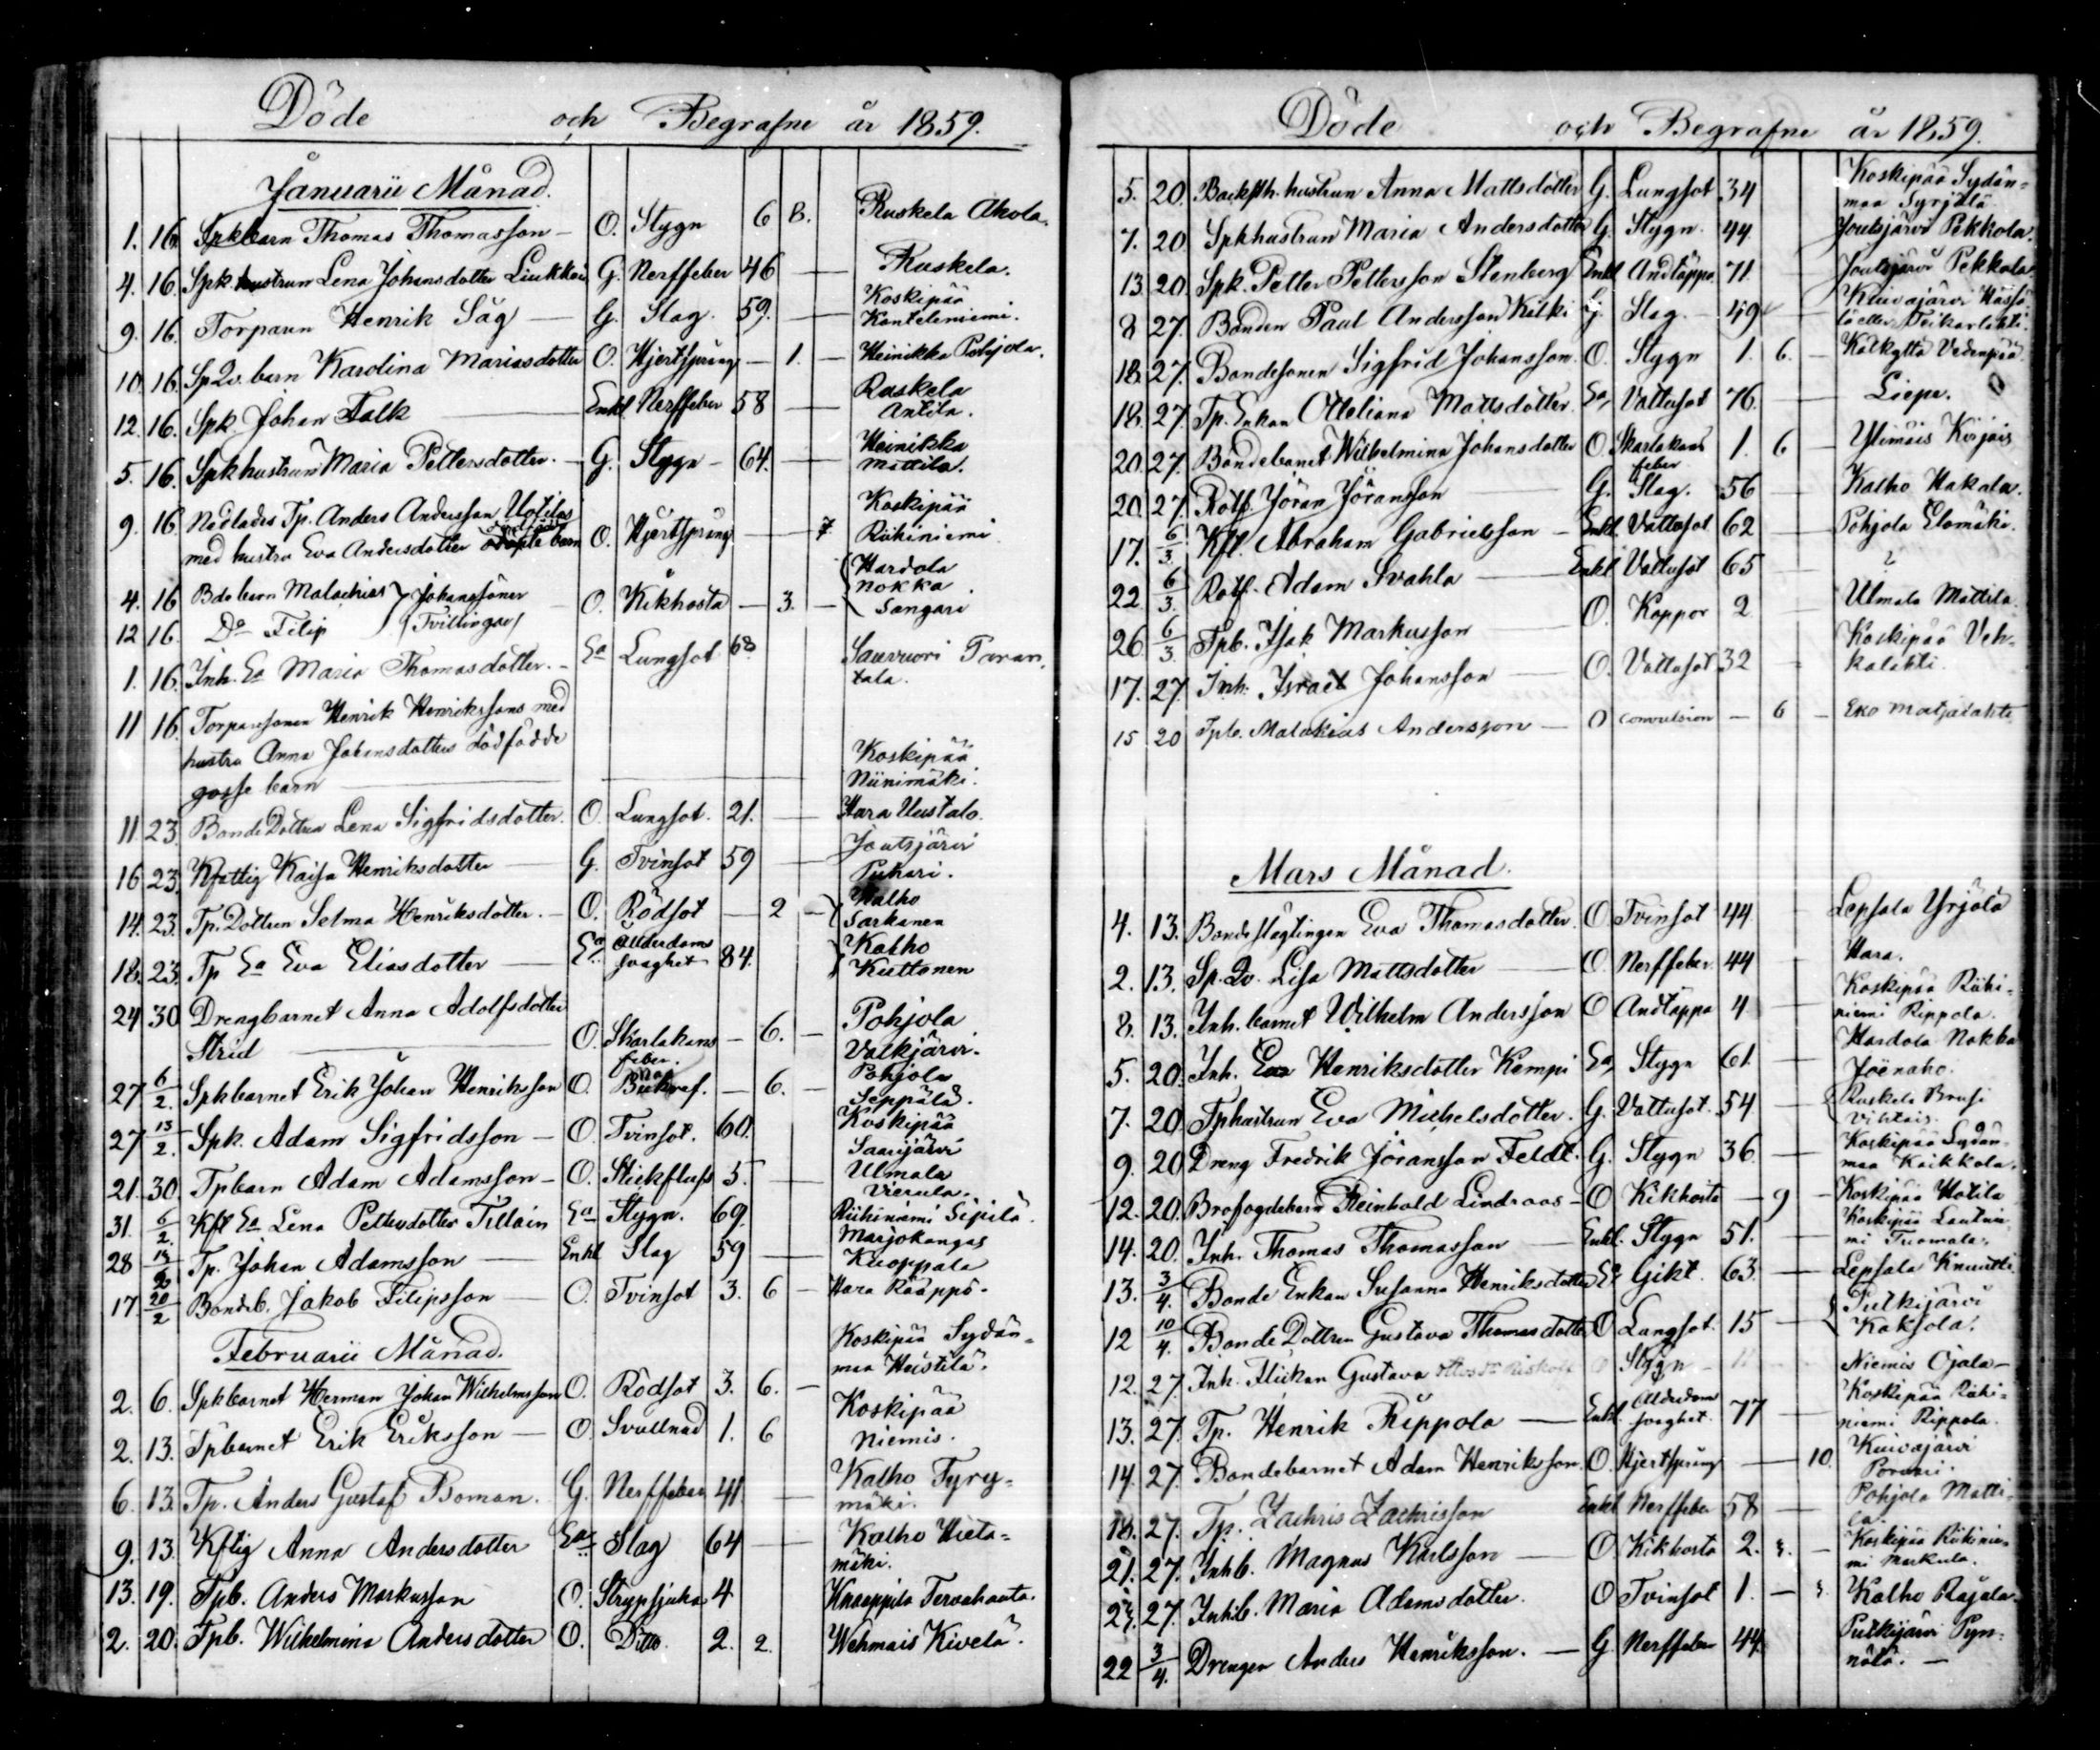 Döde och Begrafne år 1859.
Januarii Månad.
1. 16. Spkbarn Thomas Thomasson — O. Stygn 6 8. Ruskela Ahola
4. 16. Spk. hustrun Lena Johansdotter Liukkoin G. Nerffeber 46 — Ruskela.
9. 16. Torparen Henrik Säg — G. Slag. 59. — Koskipää Konteleniemi.
10. 16. Sp Qv. barn Karolina Mariasdotter O. Hjertspring — 1. — Heinikka Pohjola.
12. 16. Spk. Johan Falk Enkl Nerffeber 58 — Ruskela Antila.
5. 16. Spkhustrun Maria Pettersdotter. — G. Stygn — 64. — Heinikka Mattila.
9. 16 Nedlades Tp. Anders Andersson Uotilas
med hustru Eva Andersdotter odöpte barn O. Hjertspring — 7 Koskipää Riihiniemi
4. 16 Bdebarn Malachias } Johanssöner
12 16. Do Filip (Tvillingar) O. Kikhosta — 3. — Hardola Nokka Sangari
1. 16. Inh. Ea Maria Thomasdotter. — Ea Lungsot 68 Sauvuori Tavan, tala.
11 16. Torparesonen Henrik Henrikssons med
hustru Anna Johansdotters dödfödde
gosse barn — Koskipää Niinimäki.
11. 23. Bonde Dottren Lena Sigfridsdotter. O. Lungsot. 21. — Hara Uustalo.
16 23. Kfattig Kaisa Henriksdotter — G. Tvinsot 59 — Joutsjärvi Puhari.
14. 23. Tp. Dottren Selma Henriksdotter. — O. Rödsot — 2 — Kalho Sarkanen
18. 23. Tp Ea Eva Eliasdotter — Ea Ålderdoms svaghet 84. Kalho Kuttanen
24 30 Drengbarnet Anna Adolfsdotter
Strid — O. Skarlakans feber. — 6. — Pohjola Valkjärvi.
27 6/2. Spkbarnet Erik Johan Henriksson O. — 6. — Pohjola Seppälä.
27 13/2. Spk. Adam Sigfridsson — O. Tvinsot. 60. Koskipää Saarijärvi
21. 30. Tpbarn Adam Adamsson — O. Stickfluss 5. — Ulmala Vierula.
31. 6/2. Kft Ea Lena Pettersdotter Tillain Ea Stygn. 69. Riihiniemi Sipilä.
28 13/2 Tp. Johan Adamsson — Enkl Slag 59 — Marjokangas Kuoppala
17. 20/2 Bondeb. Jakob Filipsson — O. Tvinsot 3. 6 — Hara Rääppö.
Februarii Månad.
2. 6. Spkbarnet Herman Johan Wilhelmsson O. Rödsot 3. 6. — Koskipää Sydän= maa Heistilä.
2. 13. Tpbarnet Erik Eriksson — O. Svullnad 1. 6 Koskipää Niemis.
6. 13. Tp. Anders Gustaf Boman. G. Nerffeber 41. — Kalho Tyry= mäki.
9. 13. Kftig Anna Andersdotter Ea Slag 64 — Kalho Hieta= mäki.
13. 19. Tpb. Anders Markusson O. Strypsjuka 4 Knaapila Tervahauta.
2. 20. Tpb. Wilhelmina Andersdotter O. Ditto 2. 2. Wehmais Kivelä.
Döde och Begrafne år 1859.
5. 20. Backsth. hustrun Anna Mattsdotter G. Lungsot 34 Koskipää Sydän= maa Syrjälä
7. 20 Spkhustrun Maria Andersdotter G. Stygn. 44 Joutsjärvi Pekkola.
13. 20. Spk. Petter Pettersson Stenberg Enkl Andtäppa 71 Joutsjärvi Pekkala
8 27. Bonden Paul Andersson Kitki G. Slag. — 49 Kuivajärvi
18. 27. Bondesonen Sigfrid Johansson. O. Stygn 1. 6. — Kalkytta Vedenpää
18. 27. Tp. Enkan Otteliana Mattsdotter. Ea, Vattusot 76. — Liepe.
20. 27. Bondebarnet Wilhelmina Johansdotter O Skarlakans feber 1. 6 — Ylimäis Kirjais
20. 27. Rotf. Jöran Jöransson — G. Slag. 56 — Kalho Hakala.
17. 6/3. Kft. Abraham Gabrielsson — Enkl. Vattusot 62 — Pohjola Elomäki.
22 6/3. Rotf. Adam Svahla — Enkl Vattusot 65 — ?
26. 6/3. Tpb. Isak Markusson — O. Koppor 2 Ulmala Mattila
17. 27. Inh. Israel Johansson — O. Vattusot 32 Koskipää Veh= kalahti.
15 20 Tpb. Malakias Andersson — O convulsion — 6 — Eko Matjalahti
Mars Månad.
4. 13. Bonde flägtingen Eva Thomasdotter. O. Tvinsot 44. Lepsala Yrjölä
2. 13. Sp. Qv. Lisa Mattsdotter — O. Nerffeber 44 Hara.
8. 13. Inh. barnet Wilhelm Andersson O Andtäppa 4 — Koskipää Riihi= niemi Rippola.
5. 20. Inh. Eva Henriksdotter Kempi Ea, Stygn 61. — Hardola Nokka Joënaho.
7. 20 Tphustrun Eva Michelsdotter. G. Vattusot. 54. — Ruskela Brusi Vihtais.
9. 20 Dreng Fredrik Jöransson Feldt. G. Stygn 36. — Koskipää Sydän= maa Kaikkola.
12. 20. Brofogdebarn Reinhold Lindroos — O Kikhosta — 9 — Koskipää Uotila
14. 20. Inh. Thomas Thomasson — Enkl. Stygn 51. — Koskipää Lautnie mi Tuomala.
13. 3/4. Bonde Enkan Susanna Henriksdotter Ea Gikt. 63. — Lepsala Knuutti.
12 10/4. Bonde Dottren Gustava Thomasdotter O Lungsot. 15 — Putkijärvi Kaksola.
12. 27. Inh. Flickan Gustava Stygn Niemis Ojala —
13. 27. Tp. Henrik Rippola — Enkl. Ålderdoms svaghet. 77 — Koskipää Riihi= niemi Rippola.
14. 27. Bondebarnet Adam Henriksson. O. Hjertspring — 10. Kuivajärvi Porvari.
18. 27. Tp. Zachris Zachrisson Enkl Nerffeber 58 — Pohjola Matti= la.
21. 27. Inhb. Magnus Karlsson — O. Kikhosta 2. 3. — Koskipää Riihinie= mi Markula.
23. 27. Inhb. Maria Adamsdotter. O Tvinsot 1. — 3. Kalho Rajala.
22 3/4. Drengen Anders Henriksson. — G. Nerffeber 44. Putkijärvi Pyn= nälä. —